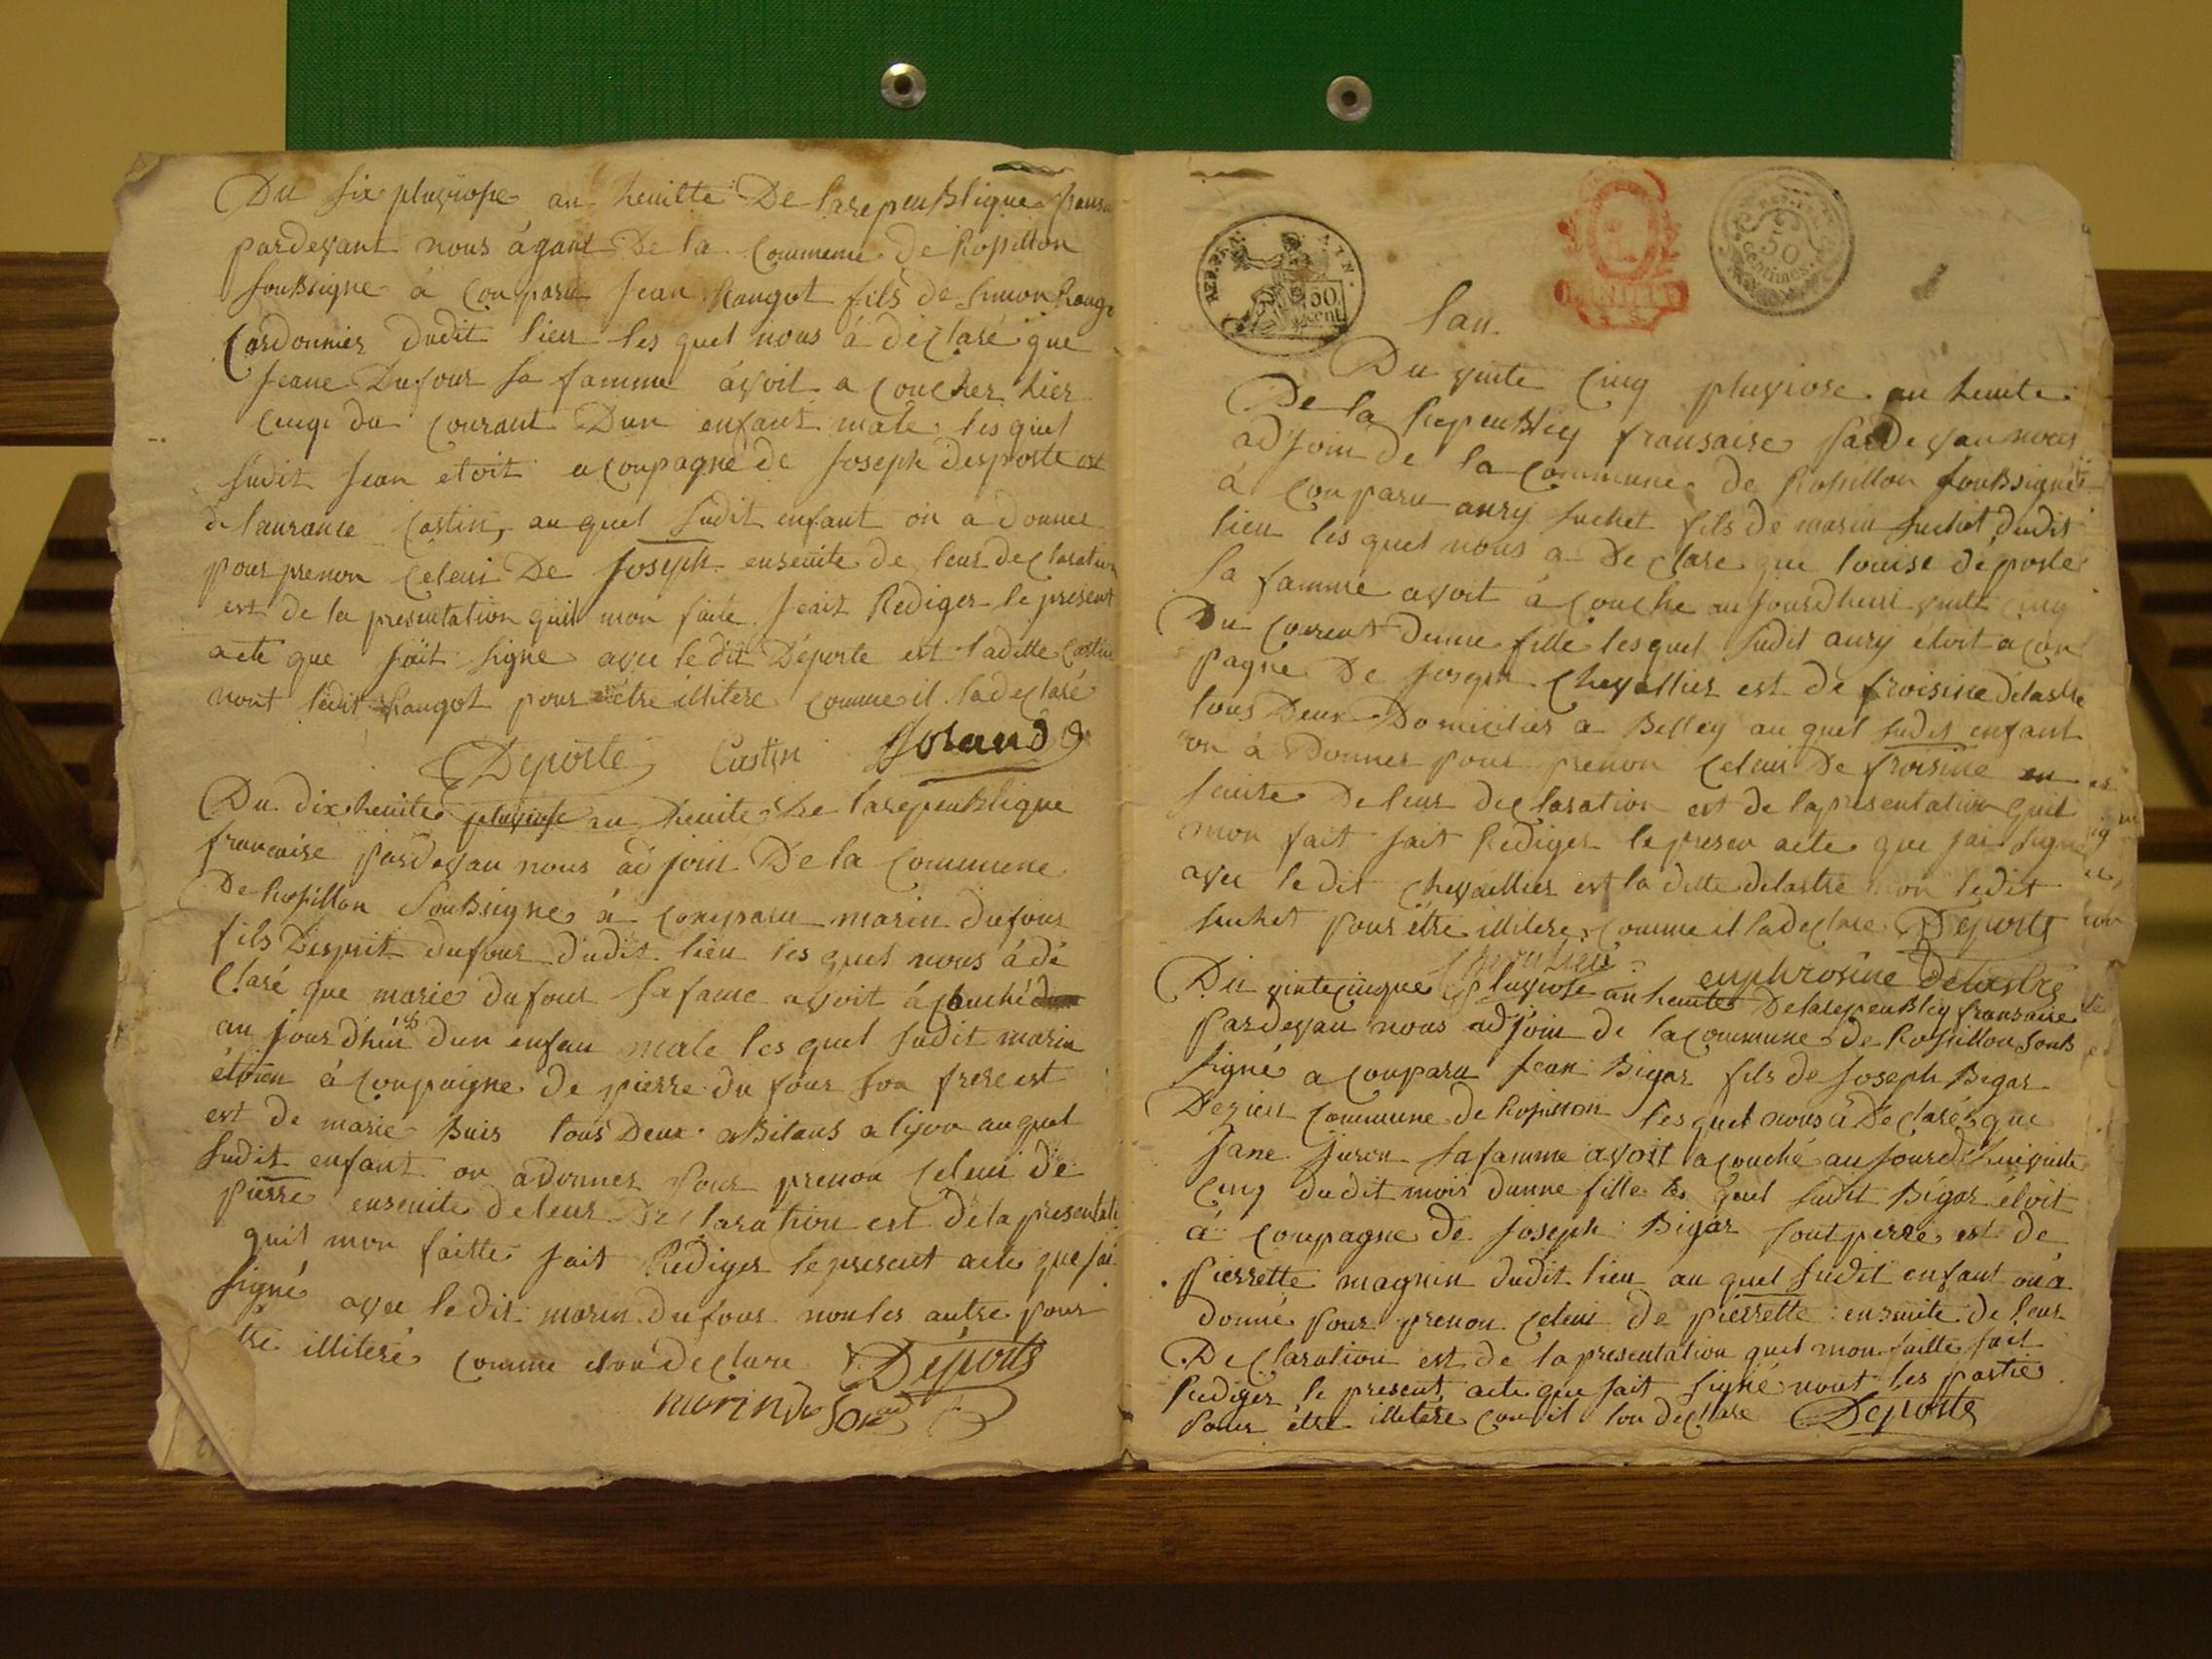 Du six pluviose an heuitte De larepeublique
pardevant nous ágant De la Commeune de Rossillon
soubsigne à Conparu Jean Rangot fils de Simon
Cordonnier dudit lieu les quel nous à déclaré que
Jeane Dufour sa famme àvoit a coucher hier
cinq du Courant Dun enfant mâle les quel
sudit Jean etoit acoupagné de Joseph desporte est
de laurance Costin, au quel sudit enfant on a donner
pour prenon celeui De Joseph enseuite de leur declaration
est de la presentation quil mon faite Jait Rediger le présent
acte que Jait signe avec le dit Déporte est laditte Costin
nont ledit Rangot pour être illitere comme il ladeclaré
Deporte Costin
Du dix heuite pluviose an heuite De larepeublique
francaise pardevau nous adjoin De la Commune
De Rossillon Soubsigne à Comparu marin dufour
fils Desprit dufour dudit lieu les quel nous à dé
Claré que marie dufour sa fame avoit á couché
au jourdhui dun enfau male les quel sudit marin
étoien à coupaigne de pierre du four son frere est
est de marie Buis tous Deux abitans a lyon au quel
sudit enfant on a donner pour prenon celeui de
pierre enseuite de leur Declaration est de la presentati
quil mon faitte Jait Rediger le present acte que Jai
signé avec le dit marin dufour non les autre pour
tre illiteré comme declare Déporte
marin
REP. FRA. 50 cent
50 Centimes
lan.
Du vinte Cinq pluviose an heuite
De la Repeubliq fransaise pardevau nous
adjoin de la Commune de Rossillon soubsigné
à Conparu anry suchet fils de marin suchet dudit
lieu les quel nous a Declare que louise déporte
sa famme avoit à couche aujourdheui vinte cinq
Du courent dunne fille lesquel sudit anry étoit acon
pagné De Joseph Chevallier est de froisine délastre
tous Deux Domicilies a Belley au quel sudit enfant
on à Donner pour prenon Celeui De froisine en
seuite De leur declaration est de lapresentation quil
mon fait Jait Rediger le presen acte que jai signe
avec le dit Chevallier est la ditte delastre non ledit
suchet pour étre illitere comme il ladeclare Déporte
euphrosine Delastre
Du vintecinque pluviose an heuite Delarepeubliq fransaise
pardevau nous adjoin de la commune de Rossillon soub
signé a coupara Jean Bigar fils de Joseph Bigar
commune de Rossillon lesquel nous à Declaré que
Jane Juron safamme avoit acouché au Jourdhui vinte
cinq dudit mois dunne fille les quel sudit Bigar étoit
à coupagne de Joseph Bigar sont perre est de
pierrette magnin dudit lieu au quel sudit enfant on à
donné pour prenon celeui de pierrette enseuite de leur
Declaration est de la presentation quil mon faitte Jait
Rediger le present acte que Jait signé nont les partie
pour étre illitere con il lon declare Déporte